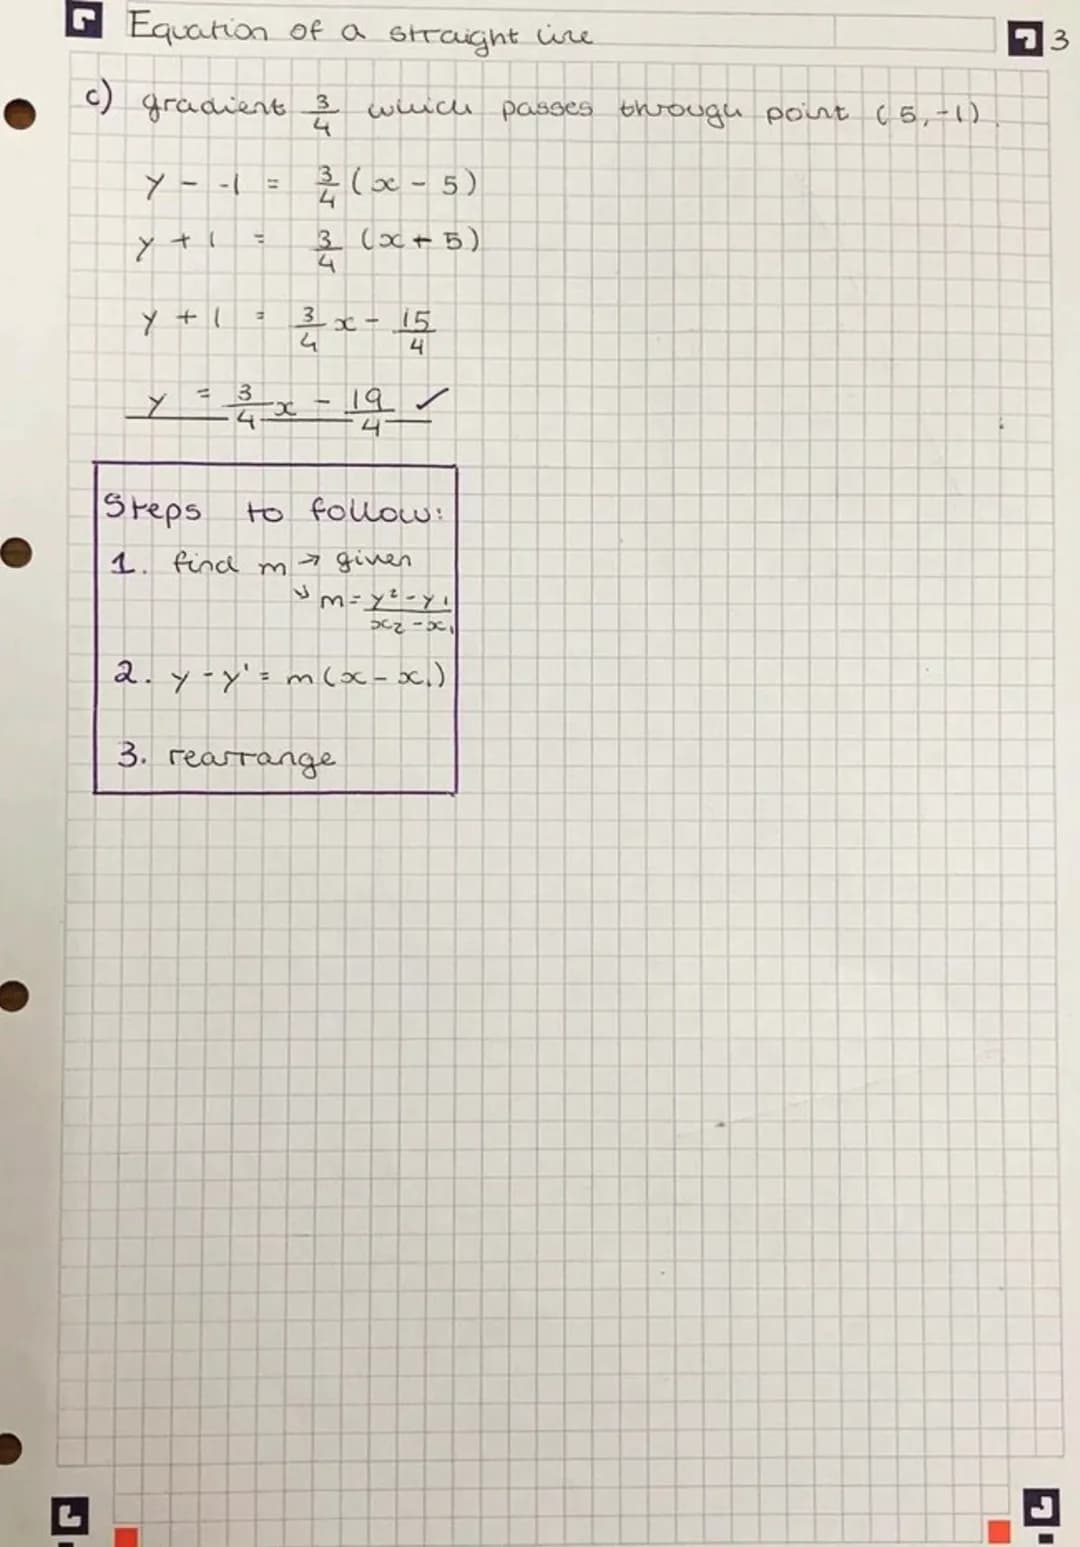 Equation of a straight line
3
c) gradient 3/4 which passes through point (5,-1).
y - -1 = 3/4 (x - 5)
y + 1 = 3/4 (x + 5)
y + 1 = 3/4 x - 15/4
y = 3/4 x - 19/4 ✓
Steps to follow:
1. find m → given
↘ m = y² - y₁ / x₂ - x₁
2. y - y' = m(x - x₁)
3. rearrange